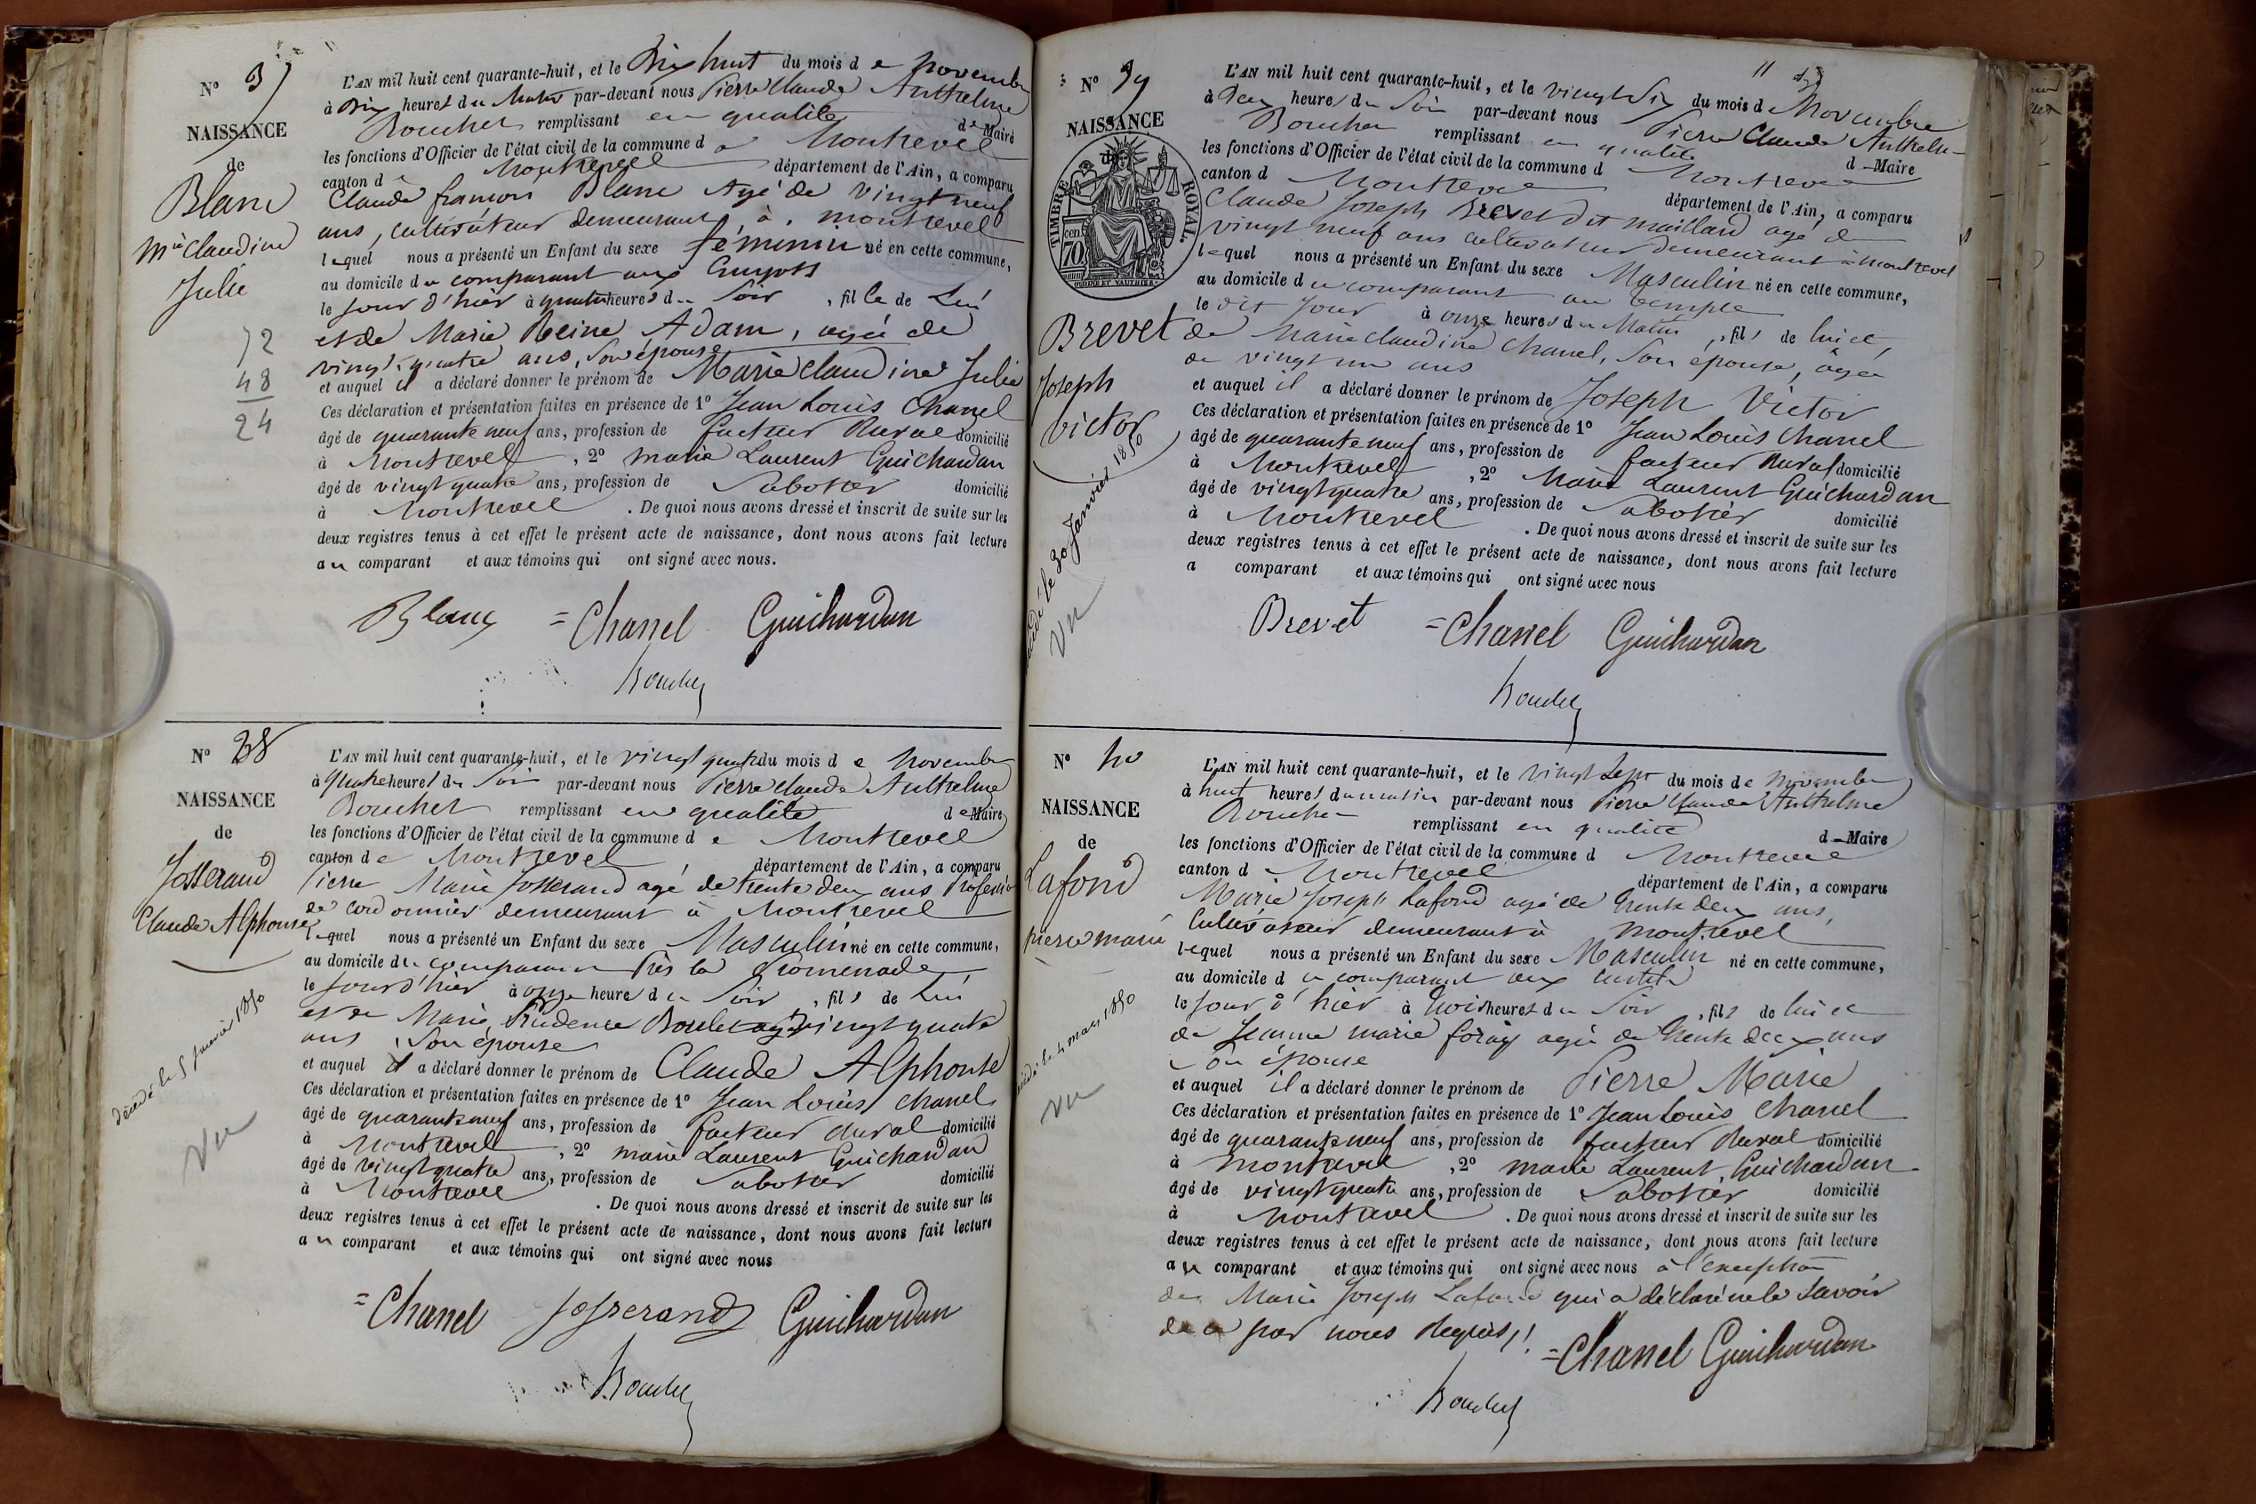 N° 37
NAISSANCE
de
Blanc
Mie Claudine
Julie
72
48
24
L'AN mil huit cent quarante-huit, et le Dix huit du mois de Novembre
à Dix heures du Matin par-devant nous Pierre Claude Anthelme
Bouchet remplissant en qualité de Maire
les fonctions d'Officier de l'état civil de la commune de Montrevel
canton de Montrevel département de l'Ain, a comparu
Claude françois Blanc Agé de vingt neuf
ans, cultivateur demeurant à montrevel
lequel nous a présenté un Enfant du sexe féminin né en cette commune,
au domicile du comparant aux
le jour d'hier à quatre heures du Soir, fille de Lui
et de Marie Reine Adam, agée de
vingt-quatre ans, Son épouse
et auquel il a déclaré donner le prénom de Marie Claudine Julie
Ces déclaration et présentation faites en présence de 1° Jean Louis Chanel
âgé de quarante neuf ans, profession de facteur Rural domicilié
à Montrevel, 2° marie Laurent Guichardan
âgé de vingt quatre ans, profession de Sabotier domicilié
à Montrevel. De quoi nous avons dressé et inscrit de suite sur les
deux registres tenus à cet effet le présent acte de naissance, dont nous avons fait lecture
au comparant et aux témoins qui ont signé avec nous.
Blanc =Chanel Guichardan
Bouchet
N° 38
NAISSANCE
de
Josserand
Claude Alphonse
décédé le 5 janvier 1850
Vu
L'AN mil huit cent quarante-huit, et le vingt quatre du mois de Novembre
à Quatre heures du Soir par-devant nous Pierre Claude Anthelme
Bouchet remplissant en qualité de Maire
les fonctions d'Officier de l'état civil de la commune de Montrevel
canton de Montrevel département de l'Ain, a comparu
Pierre Marie Josserand agé de trente deux ans Profession
de cordonnier demeurant à Montrevel
lequel nous a présenté un Enfant du sexe Masculin né en cette commune,
au domicile du comparant Près la Promenade
le jour d'hier à onze heures du Soir, fils de Lui
et de Marie Prudence vingt quatre
ans, Son épouse
et auquel il a déclaré donner le prénom de Claude Alphonse
Ces déclaration et présentation faites en présence de 1° Jean Louis Chanel
âgé de quarante neuf ans, profession de facteur Rural domicilié
à Montrevel, 2° marie Laurent Guichardan
âgé de vingt quatre ans, profession de Sabotier domicilié
à Montrevel. De quoi nous avons dressé et inscrit de suite sur les
deux registres tenus à cet effet le présent acte de naissance, dont nous avons fait lecture
au comparant et aux témoins qui ont signé avec nous
=Chanel Josserand Guichardan
Bouchet
11
N° 39
NAISSANCE
de
TIMBRE ROYAL.
70 cen
Brevet
Joseph
Victor
décédé le 30 Janvier 1850
Vu
L'AN mil huit cent quarante-huit, et le vingt Six du mois de Novembre
à Deux heures du Soir par-devant nous Pierre Claude Anthelme
Bouchet remplissant en qualité d Maire
les fonctions d'Officier de l'état civil de la commune d Montrevel
canton d Montrevel département de l'Ain, a comparu
Claude Joseph Brevet dit maillard agé de
vingt neuf ans cultivateur demeurant à Montrevel
lequel nous a présenté un Enfant du sexe Masculin né en cette commune,
au domicile du comparant au temple
le dit jour à onze heures du Matin, fils de lui et,
de Marie Claudine Chanel, Son épouse, âgée
de vingt un ans
et auquel il a déclaré donner le prénom de Joseph Victor
Ces déclaration et présentation faites en présence de 1° Jean Louis Chanel
âgé de quarante neuf ans, profession de facteur Rural domicilié
à Montrevel, 2° Marie Laurent Guichardan
âgé de vingt quatre ans, profession de Sabotier domicilié
à Montrevel. De quoi nous avons dressé et inscrit de suite sur les
deux registres tenus à cet effet le présent acte de naissance, dont nous avons fait lecture
a comparant et aux témoins qui ont signé avec nous
Brevet =Chanel Guichardan
Bouchet
N° 40
NAISSANCE
de
Lafond
pierre marie
décédé le 4 mars 1850
Vu
L'AN mil huit cent quarante-huit, et le vingt Sept du mois de Novembre
à huit heures du matin par-devant nous Pierre Claude Anthelme
Bouchet remplissant en qualité d Maire
les fonctions d'Officier de l'état civil de la commune d Montrevel
canton d Montrevel département de l'Ain, a comparu
Marie Joseph Lafond agé de trente deux ans,
Cultivateur demeurant à Montrevel
lequel nous a présenté un Enfant du sexe Masculin né en cette commune,
au domicile du comparant aux
le jour d'hier à trois heures du Soir, fils de lui et
de Jeanne marie agée de trente deux ans
Son épouse
et auquel il a déclaré donner le prénom de Pierre Marie
Ces déclaration et présentation faites en présence de 1° Jean Louis Chanel
âgé de quarante neuf ans, profession de facteur Rural domicilié
à Montrevel, 2° marie Laurent Guichardan
âgé de vingt quatre ans, profession de Sabotier domicilié
à Montrevel. De quoi nous avons dressé et inscrit de suite sur les
deux registres tenus à cet effet le présent acte de naissance, dont nous avons fait lecture
au comparant et aux témoins qui ont signé avec nous à l'exception
de Marie Joseph Lafond qui a déclaré ne le Savoir
de ce par nous Requis,!
=Chanel Guichardan
Bouchet